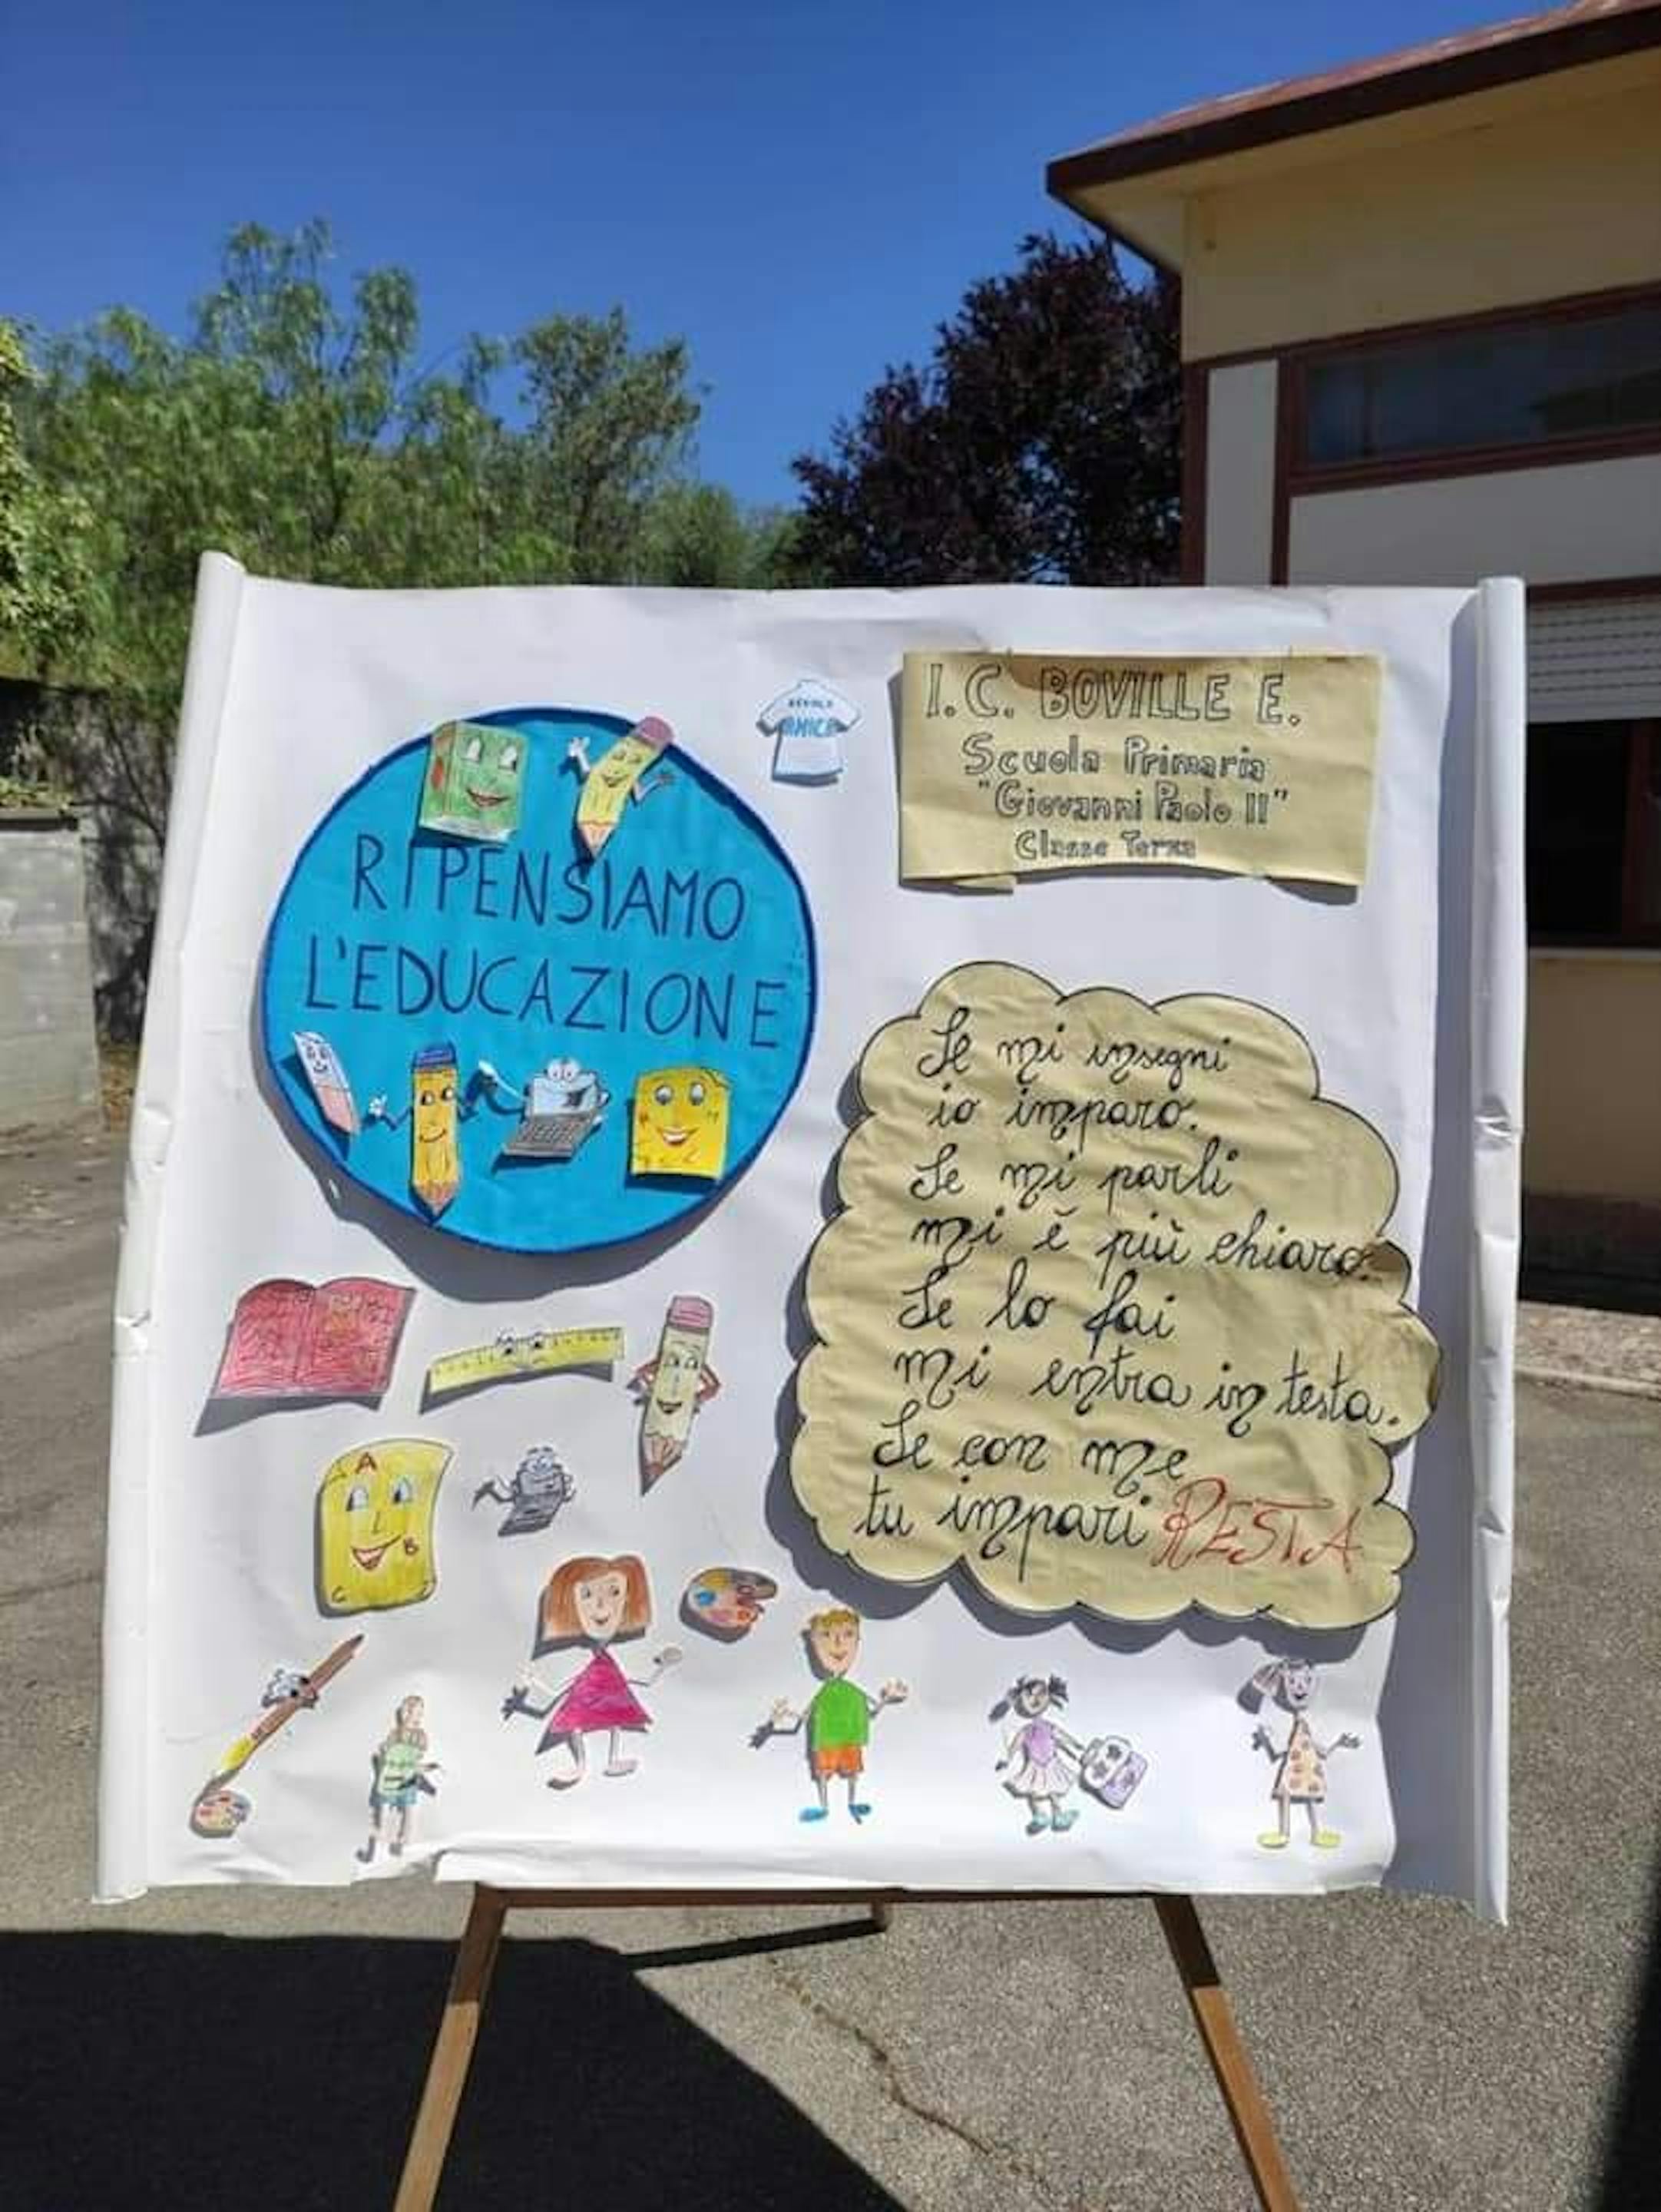 SCUOLA
AMICA
I.C. BOVILLE E.
Scuola Primaria
"Giovanni Paolo II"
Classe Terza
RIPENSIAMO
L'EDUCAZIONE
Se mi insegni
io imparo.
Se mi parli
mi è più chiaro.
Se lo fai
mi entra in testa.
Se con me
tu impari RESTA
A
B
C